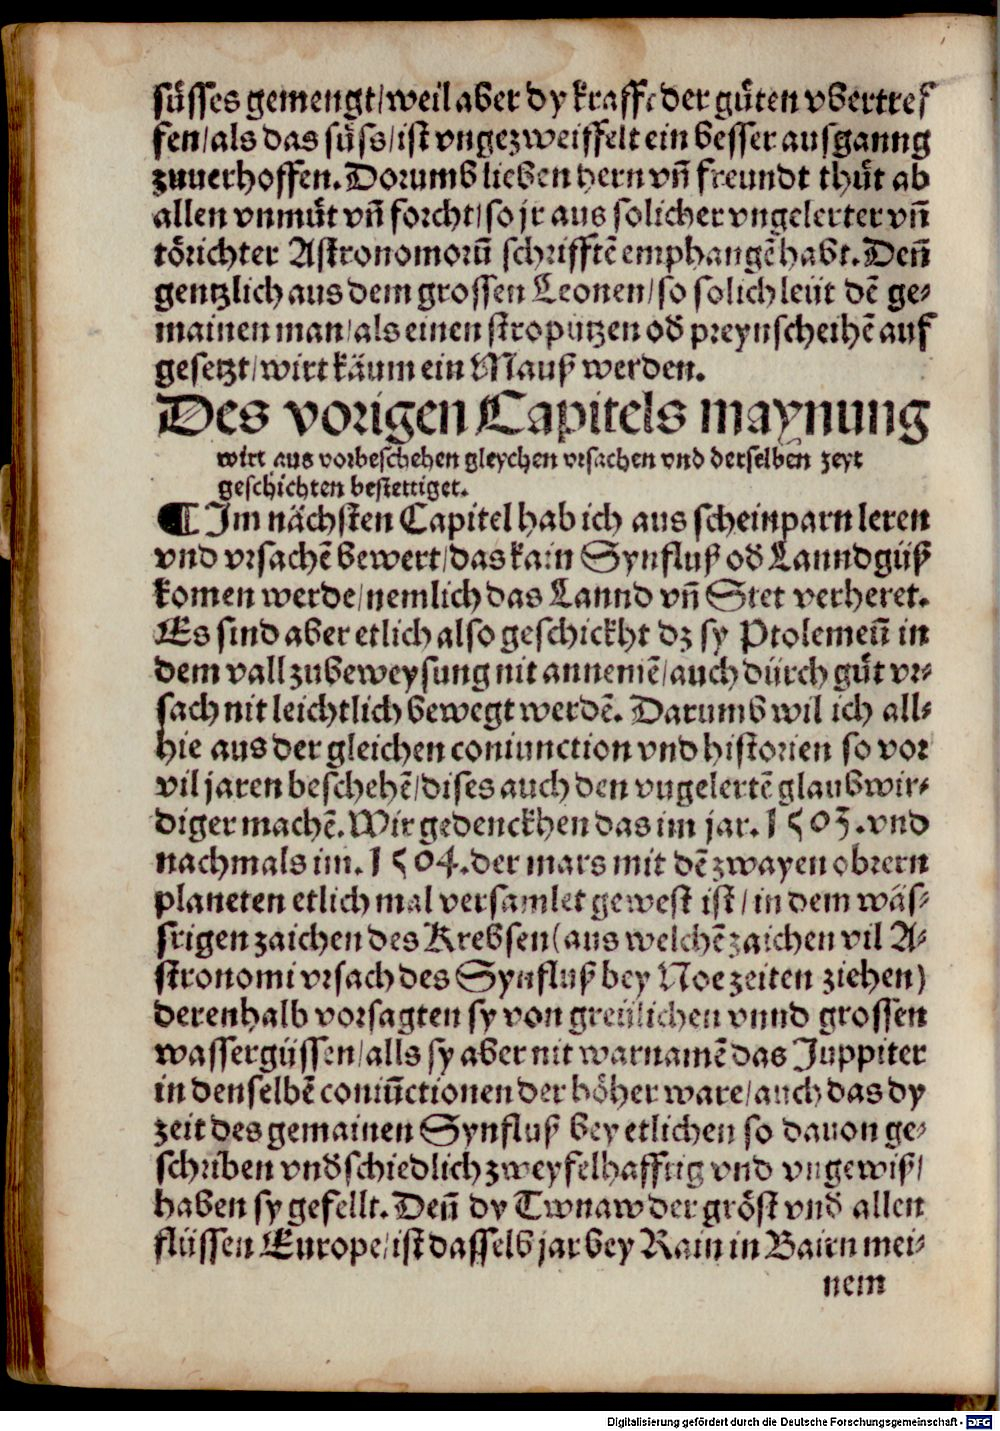 süsses gemengt/weil aber dy krafft der güten vbertref
fen/als das süss/ist vngezweiffelt ein besser ausganng
zuuerhoffen. Dorumb lieben hern vn̄ freundt thüt ab
allen vnmüt vn̄ forcht/so jr aus solicher vngelerter vn̄
törichter Astronomorū schrifftē emphangē habt. Den̄
gentzlich aus dem grossen Leonen/so solich leüt dē ge⸗
mainen man/als einen stroputzen od̄ preynscheihē auf
gesetzt/wirt käum ein Mauß werden.
Des vorigen Capitels maynung
wirt aus vorbeschehen gleychen vrsachen vnd derselben zeyt
geschichten bestettiget.
¶ Im nächsten Capitel hab ich aus scheinparn leren
vnd vrsachē bewert/das kain Synfluß od̄ Lanndgüß
komen werde/nemlich das Lannd vn̄ Stet verheret.
Es sind aber etlich also geschickht dz sy Ptolemeū in
dem vall zubeweysung nit annemē/auch dürch güt vr⸗
sach nit leichtlich bewegt werdē. Darumb wil ich all⸗
hie aus der gleichen coniunction vnd historien so vor
vil jaren beschehē/dises auch den vngelertē glaubwir⸗
diger machē. Wir gedenckhen das im jar. 1503. vnd
nachmals im. 1504. der mars mit dē zwayen obrern
planeten etlich mal versamlet gewest ist/in dem wäs⸗
srigen zaichen des Krebsen(aus welchē zaichen vil A⸗
stronomi vrsach des Synfluß bey Noe zeiten ziehen)
derenhalb vorsagten sy von greülichen vnnd grossen
wassergüssen/alls sy aber nit warnamē das Juppiter
in denselbē coniūctionen der höher ware/auch das dy
zeit des gemainen Synfluß bey etlichen so dauon ge⸗
schriben vnd̄schiedlich zweyfelhafftig vnd vngewiß/
haben sy gefellt. Den̄ dy Twnaw der gröst vnd̄ allen
flüssen Europe/ist dasselb jar bey Rain in Bairn mei⸗
nem
Digitalisierung gefördert durch die Deutsche Forschungsgemeinschaft - DFG